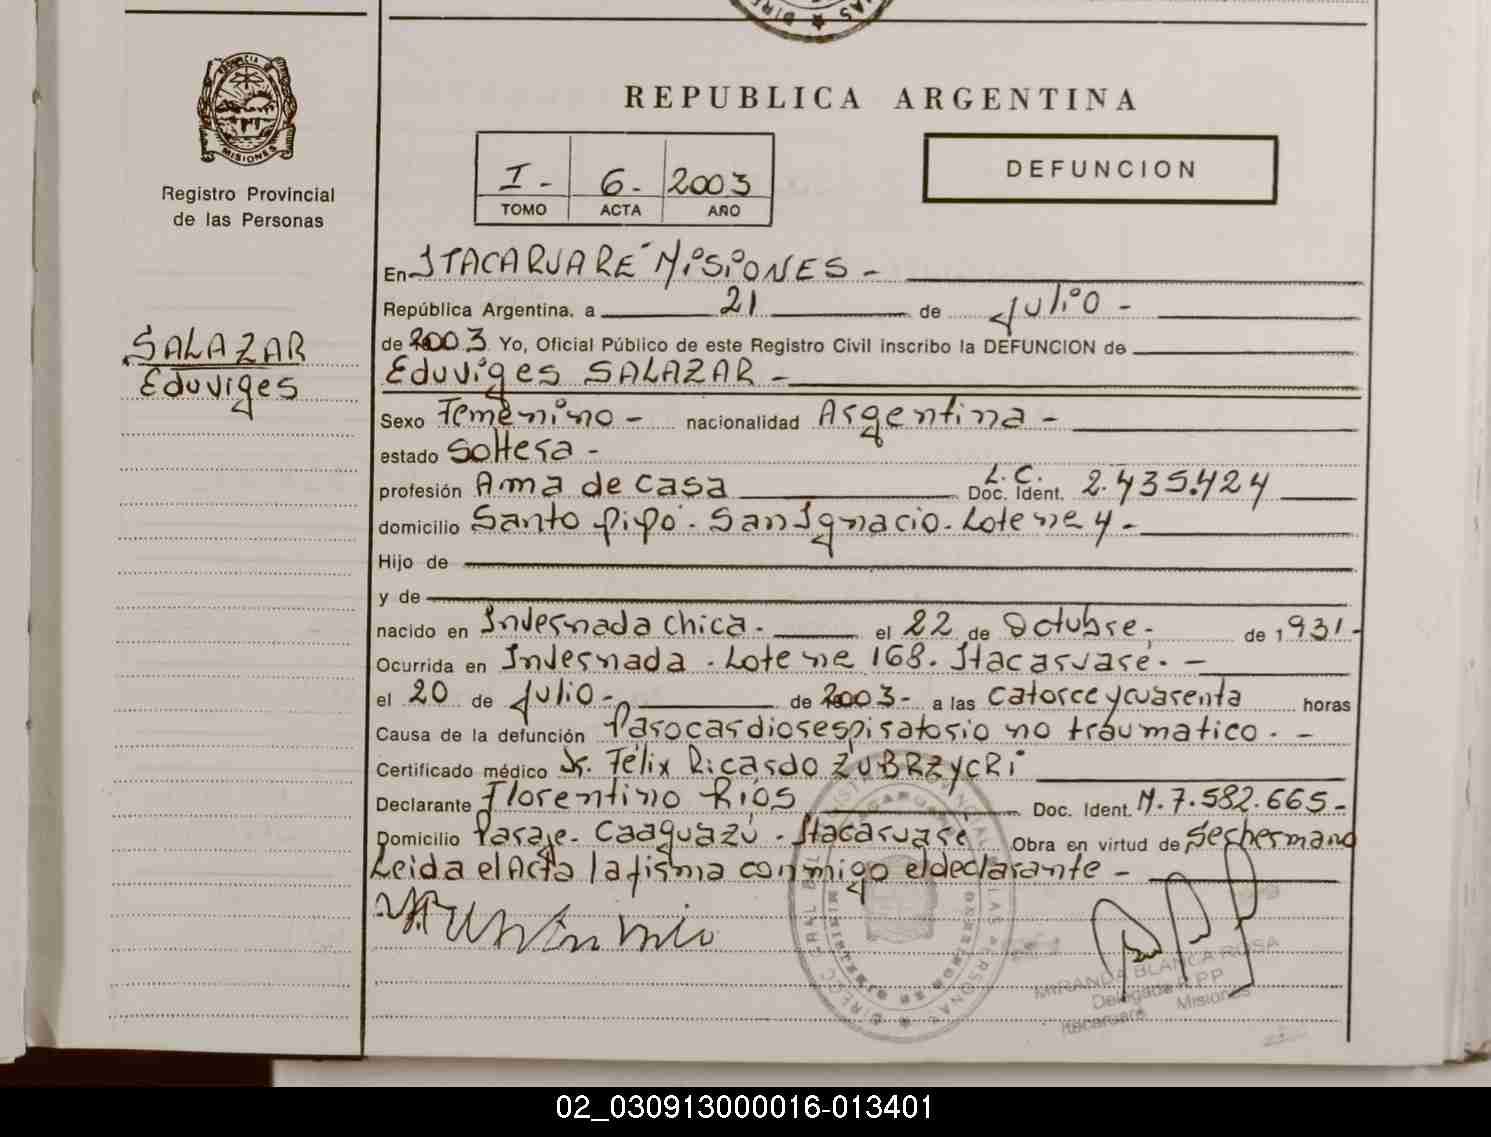 REPUBLICA ARGENTINA
PROVINCIA DE
MISIONES
Registro Provincial
de las Personas
I - 6 - 2003
TOMO ACTA AÑO
DEFUNCION
SALAZAR
Eduviges
En ITACARUARE MISIONES -
República Argentina, a 21 de Julio -
de 2003 Yo, Oficial Público de este Registro Civil inscribo la DEFUNCION de
Eduviges SALAZAR -
Sexo Femenino - nacionalidad Argentina -
estado Soltera -
profesión Ama de casa L.C. Doc. Ident. 2.435.424
domicilio Santo Pipó - San Ignacio - Lote nº 4 -
Hijo de
y de
nacido en Invernada Chica - el 22 de Octubre - de 1931 -
Ocurrida en Invernada - Lote nº 168 - Itacaruaré - -
el 20 de Julio - de 2003 - a las catorce y cuarenta horas
Causa de la defunción Parocardiorespiratorio no traumatico - -
Certificado médico Dr. Félix Ricardo ZUBRZYCKI
Declarante Florentino Ríos Doc. Ident. M. 7.582.665 -
Domicilio Paraje - Caaguazú - Itacaruaré Obra en virtud de ser hermano
Leida el Acta la firma conmigo el declarante -
MIRANDA BLANCA ROSA
Delegada R.P.P
Itacaruaré Misiones
02_030913000016-013401